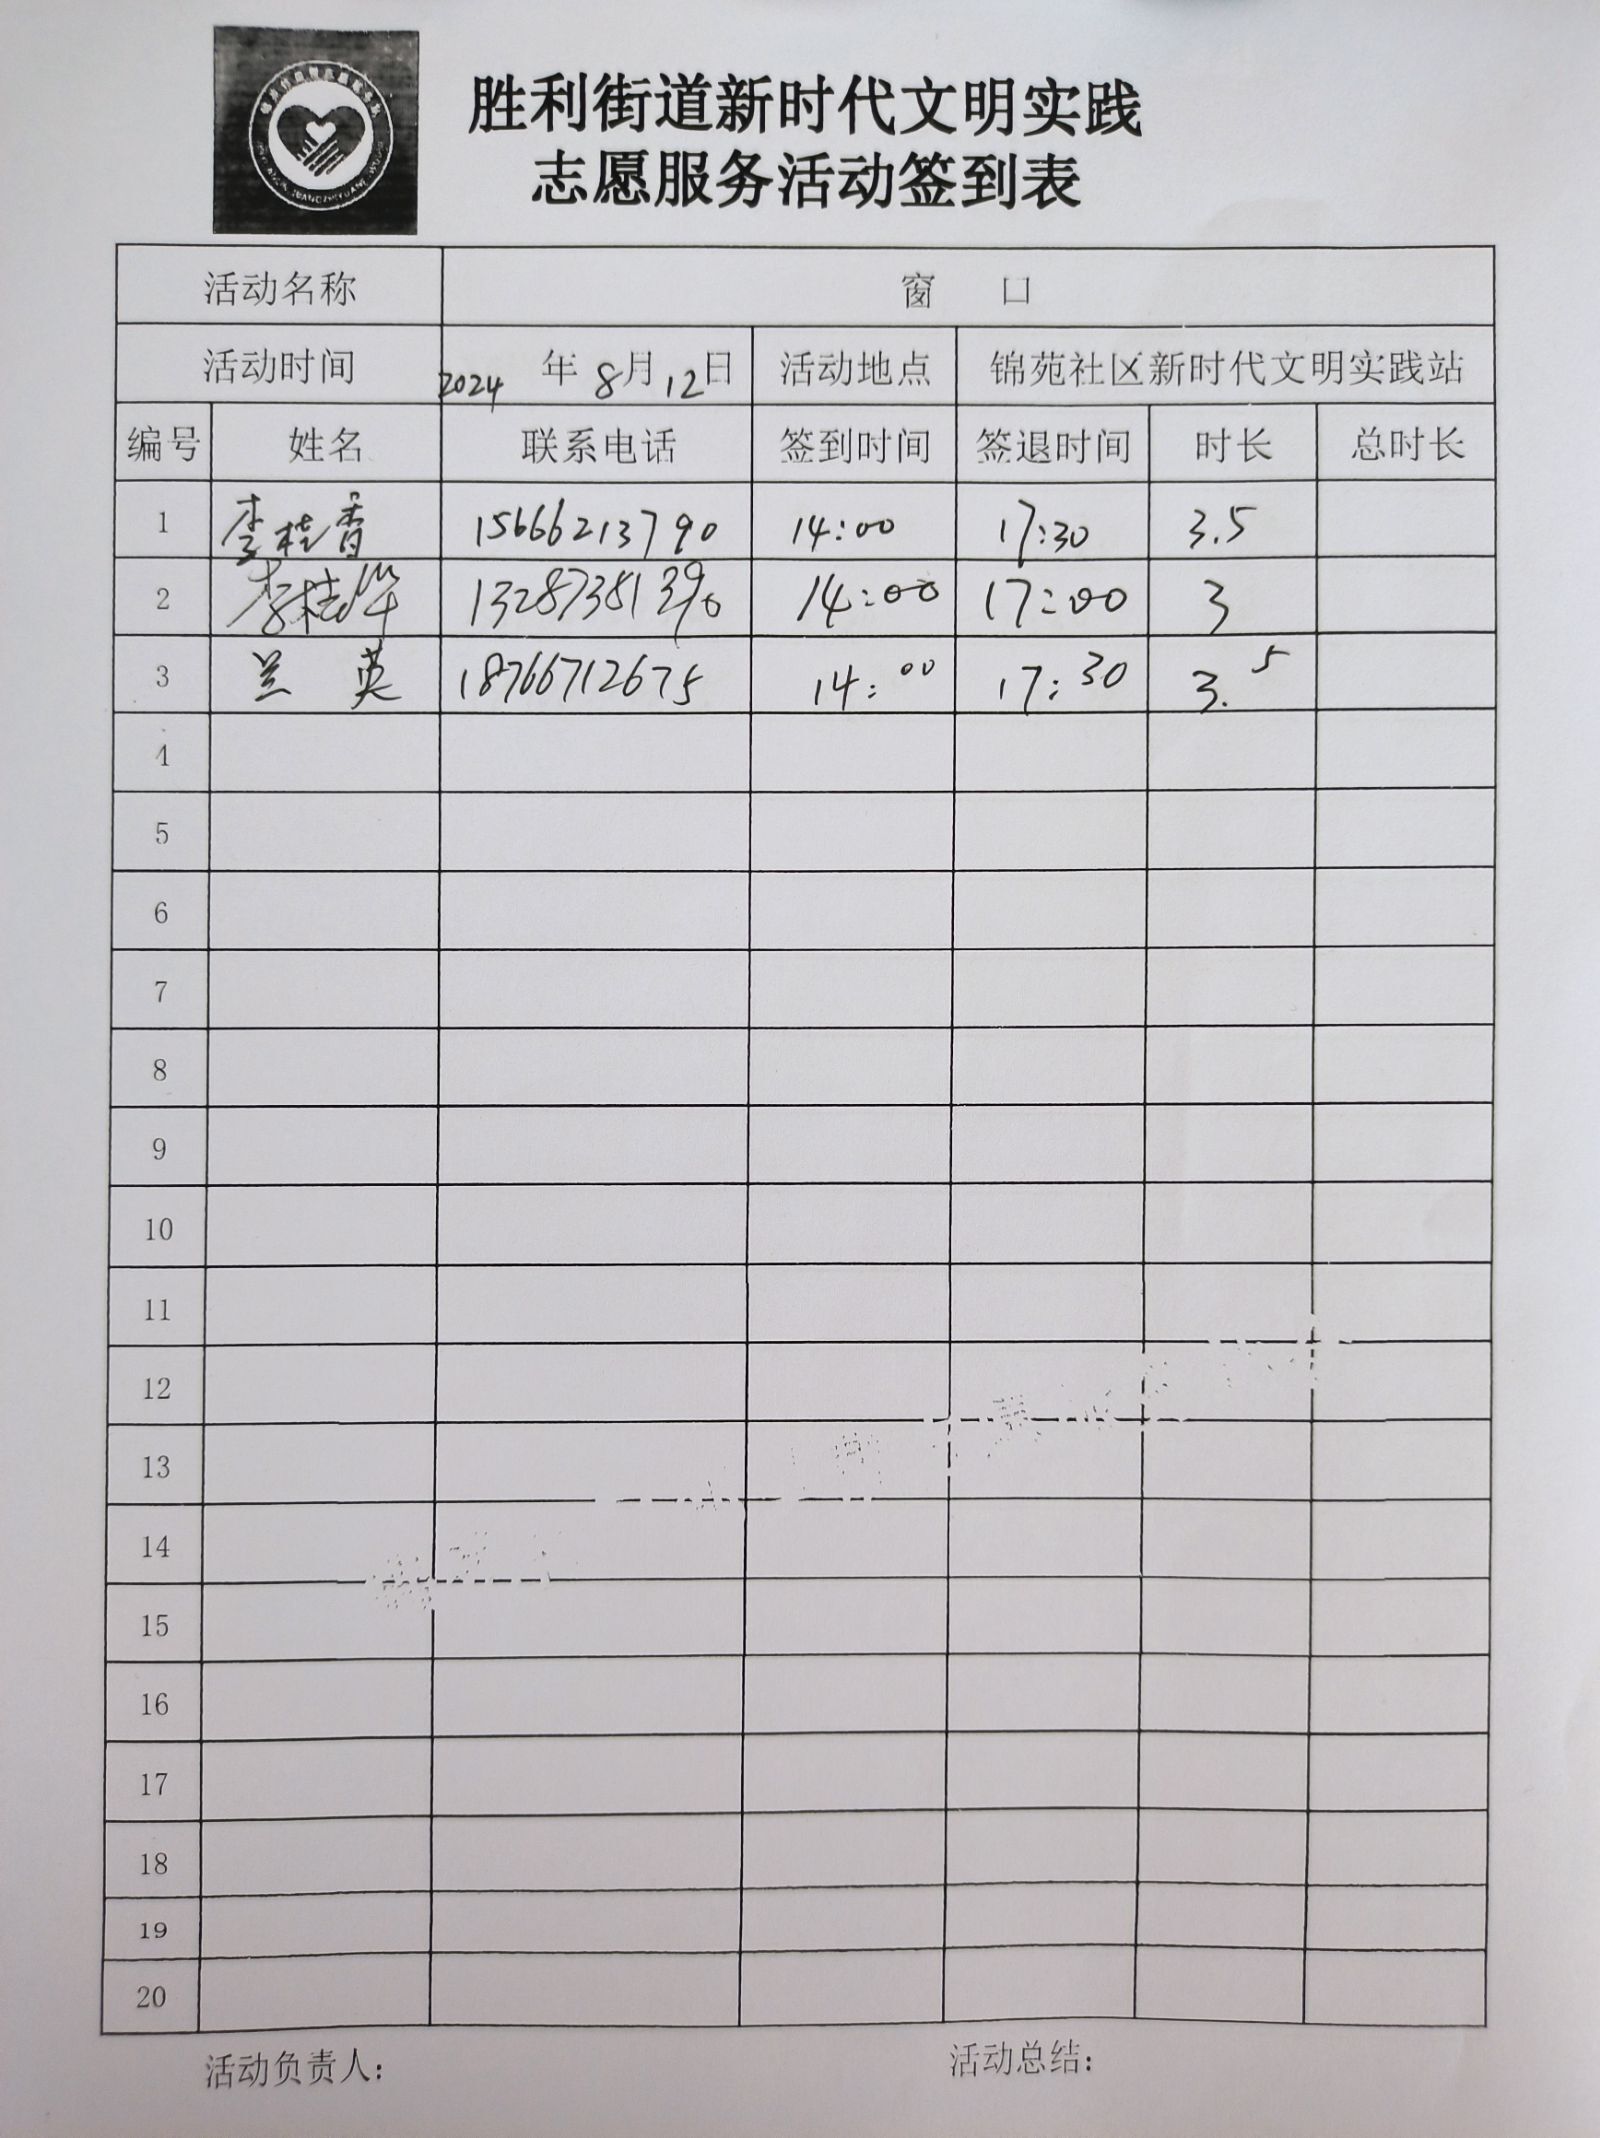 胜利街道新时代文明实践
志愿服务活动签到表
活动名称 窗 口
活动时间 2024 年 8月 12日 活动地点 锦苑社区新时代文明实践站
编号 姓名 联系电话 签到时间 签退时间 时长 总时长
1 李桂香 15666213790 14:00 17:30 3.5
2 李桂华 13287381390 14:00 17:00 3
3 兰 英 18766712675 14:00 17:30 3.5
4
5
6
7
8
9
10
11
12
13
14
15
16
17
18
19
20
活动负责人: 活动总结: